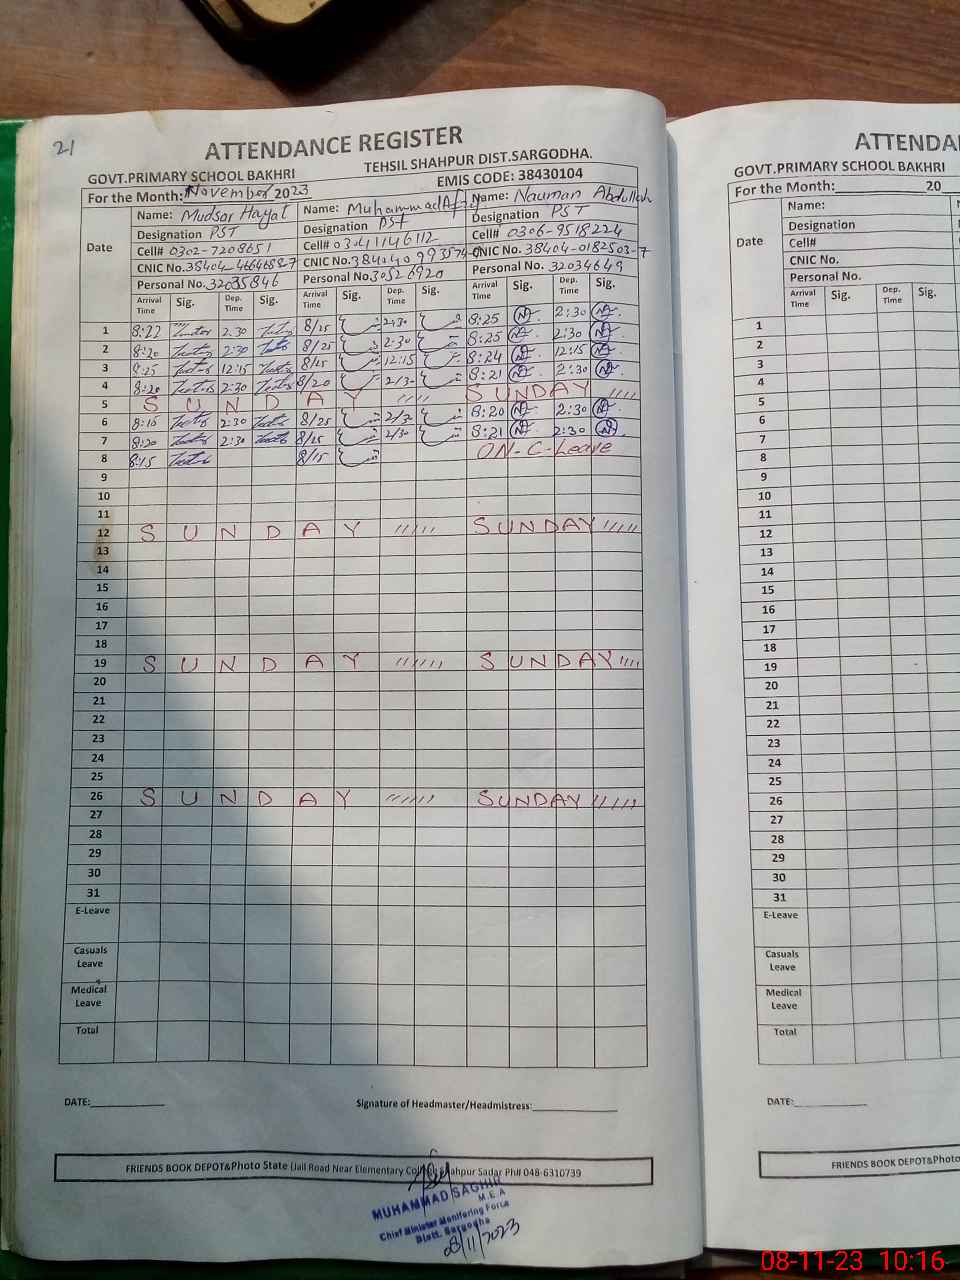 21
ATTENDANCE REGISTER
GOVT.PRIMARY SCHOOL BAKHRI TEHSIL SHAHPUR DIST.SARGODHA.
For the Month: November 2023 EMIS CODE: 38430104
Date
Name: Mudsar Hayat
Designation PST
Cell# 0302-7208651
CNIC No.
Personal No. 32035846
Name: Muhammad
Designation PST
Cell# 03241146112
CNIC No.
Personal No. 30526920
Name: Nauman Abdullah
Designation PST
Cell# 0306-9518224
CNIC No. 38404-0182503-7
Personal No. 32034649
Arrival Time Sig. Dep. Time Sig. Arrival Time Sig. Dep. Time Sig. Arrival Time Sig. Dep. Time Sig.
1 8:22 2:30 8/25 2:30 8:25 2:30
2 8:20 2:30 8/25 2:30 8:25 2:30
3 8:25 12:15 8/25 12:15 8:24 12:15
4 8:20 2:30 8/20 2/30 8:21 2:30
5 S U N D A Y ,,,, SUNDAY ,,,,
6 8:10 2:30 8/25 2/30 8:20 2:30
7 8:20 2:30 8/25 2/30 8:21 2:30
8 8:15 8/15 ON-C-Leave
9
10
11
12 S U N D A Y ,,,,, SUNDAY ,,,,,
13
14
15
16
17
18
19 S U N D A Y ,,,,,, SUNDAY ,,,,
20
21
22
23
24
25
26 S U N D A Y ,,,,,, SUNDAY ,,,,,
27
28
29
30
31
E-Leave
Casuals Leave
Medical Leave
Total
DATE:____________ Signature of Headmaster/Headmistress:____________
FRIENDS BOOK DEPOT&Photo State (Jail Road Near Elementary Shahpur Sadar PhII 048-6310739
MUHAMMAD SAGHIR
M.E.A
Chief Minister Monitoring Force
Distt. Sargodha
08/11/2023
ATTENDA
GOVT.PRIMARY SCHOOL BAKHRI
For the Month:____________ 20
Date
Name:
Designation
Cell#
CNIC No.
Personal No.
Arrival Time Sig. Dep. Time Sig.
1
2
3
4
5
6
7
8
9
10
11
12
13
14
15
16
17
18
19
20
21
22
23
24
25
26
27
28
29
30
31
E-Leave
Casuals Leave
Medical Leave
Total
DATE:____________
FRIENDS BOOK DEPOT&Photo
08-11-23 10:16